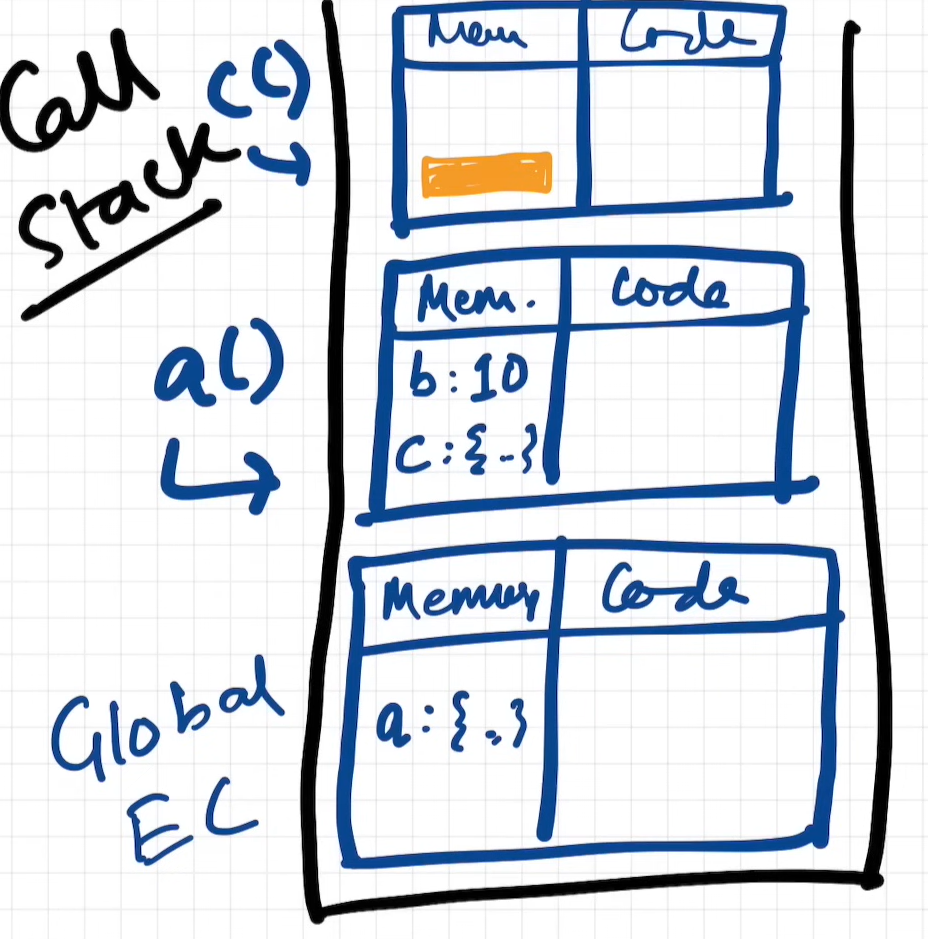 Call
Stack
c()
Mem Code
a()
Mem. Code
b:10
c:{..}
Global
EC
Memory Code
a:{..}